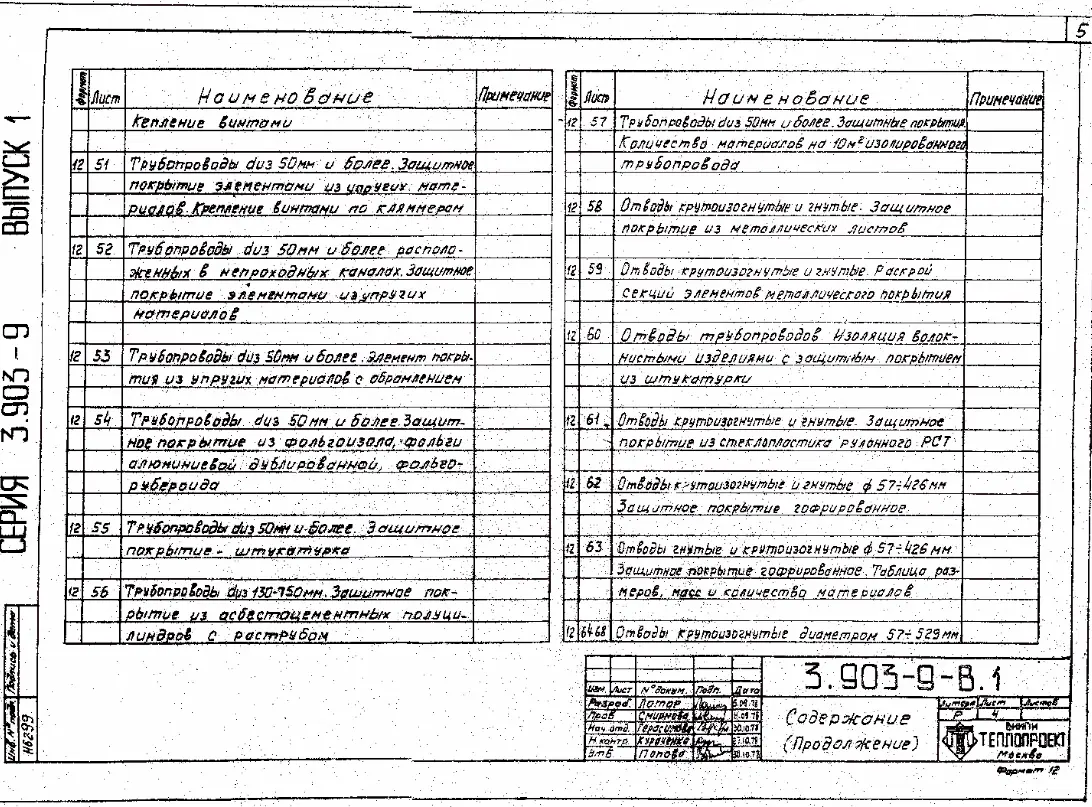 5
СЕРИЯ 3.903-9 ВЫПУСК 1
Формат Лист Наименование Примечание
Кепление винтами
12 51 Трубопроводы dиз 50мм и более. Защитное
покрытие элементами из упругих мате-
риалов. Крепление винтами по кляммерам
12 52 Трубопроводы dиз 50мм и более располо-
женных в непроходных каналах. Защитное
покрытие элементами из упругих
материалов
12 53 Трубопроводы dиз 50мм и более. Элемент покры-
тия из упругих материалов с обрамлением
12 54 Трубопроводы dиз 50мм и более. Защит-
ное покрытие из фольгоизола, фольги
алюминиевой дублированной, фольго-
рубероида
12 55 Трубопроводы dиз 50мм и более. Защитное
покрытие - штукатурка
12 56 Трубопроводы dиз 130÷750мм. Защитное пок-
рытие из асбестоцементных полуци-
линдров с раструбом
Формат Лист Наименование Примечание
12 57 Трубопроводы dиз 50мм и более. Защитные покрытия
Количество материалов на 10м² изолированного
трубопровода
12 58 Отводы крутоизогнутые и гнутые. Защитное
покрытие из металлических листов
12 59 Отводы крутоизогнутые и гнутые. Раскрой
секций элементов металлического покрытия
12 60 Отводы трубопроводов Изоляция волок-
нистыми изделиями с защитным покрытием
из штукатурки
12 61 Отводы крутоизогнутые и гнутые. Защитное
покрытие из стеклопластика рулонного РСТ
12 62 Отводы крутоизогнутые и гнутые ф 57÷426мм
Защитное покрытие гофрированное.
12 63 Отводы гнутые и крутоизогнутые ф 57÷426 мм
Защитное покрытие гофрированное. Таблица раз-
меров, масс и количества материалов
12 64-68 Отводы крутоизогнутые диаметром 57÷529мм
Изм. Лист № докум. Подп. Дата
Разраб. Лотор
Пров Смирнова
Нач. отд. Герасимова
Н. контр.
Утв Попова
3.903-9-В.1
Содержание
(Продолжение)
Литера Лист Листов
Р 4
ВНИПИ
ТЕПЛОПРОЕКТ
Москва
Формат 12
Инв. № подл. Подпись и дата
Н6299